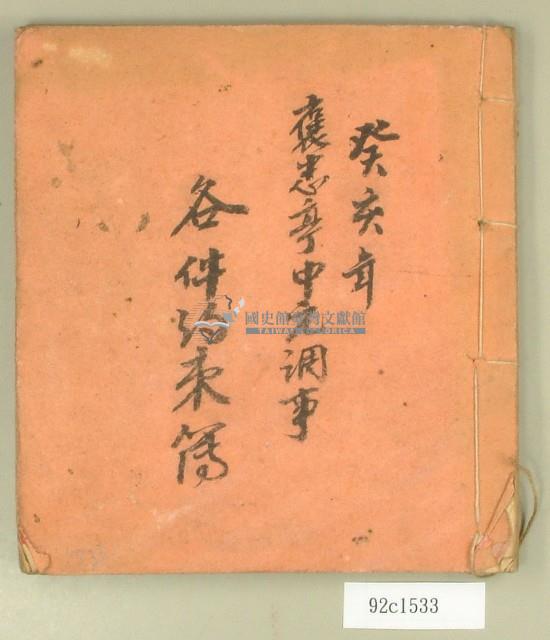 癸亥年
褒忠亭中元调事
各件約束簿
國史館臺灣文獻館
TAIWAN HISTORICA
92c1533